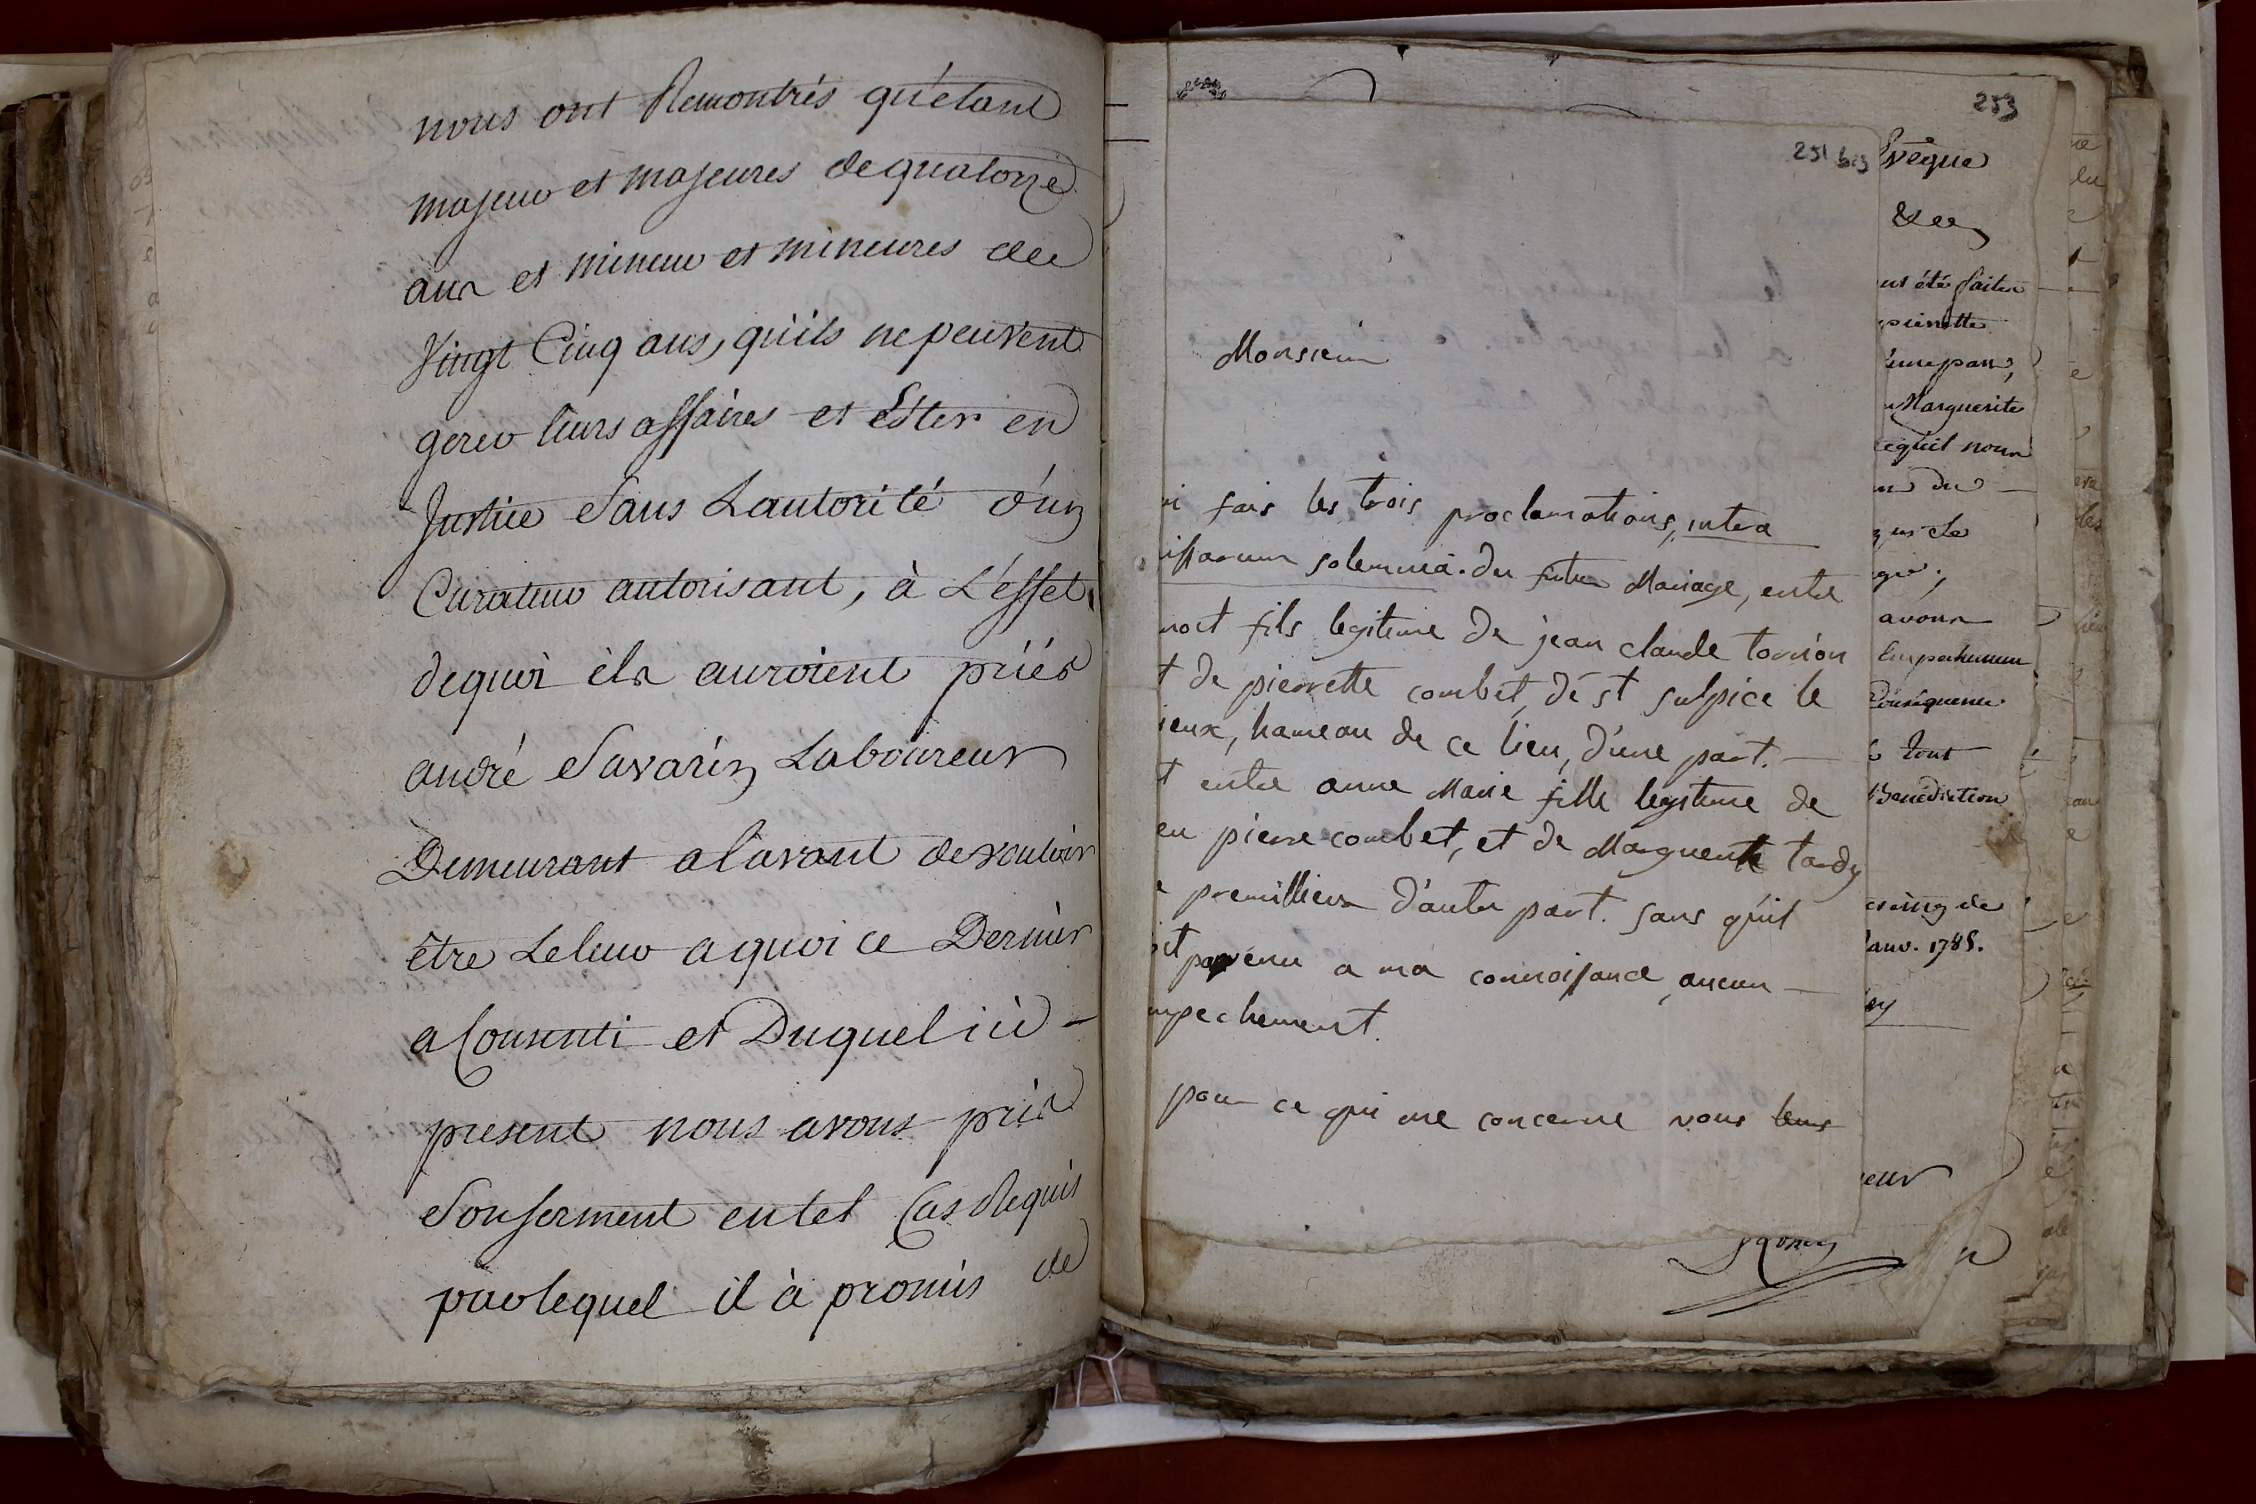 nous ont Remontrés qu'étant
majeur et majeures de quatorze
ans et mineur et mineures de
Vingt Cinq ans, qu'ils ne peuvent
gerer leurs affaires et Ester en
Justice Sans L'autorité d'un
Curateur autorisant, à L'effet
dequoi ils auroient priés
andré Savarin Laboureur
Demeurant a lavant de vouloir
être Leleur a quoi ce Dernier
a Consenti et Duquel ici -
present nous avons pris
Son serment en tel Cas Requis
par lequel il à promis de
253
251 bis
Monsieur
fais les trois proclamations, intra
solemnia. du futur Mariage, entre
fils legitime de jean claude tornion
de pierrette combet, de st sulpice le
ieux, hameau de ce lieu, d'une part. —
entre anne Marie fille legitime de
eu pierre combet, et de Marguerite tardy
premillieu d'autre part. sans qu'il
parvenu a ma connoissance, aucun —
mpechement.
pour ce qui me concerne vous
Evêque
&ee
nt été faites
pierrette
une part,
Marguerite
ce qu'il nous
du —
avons
Empechement
Conséquence
tout
Bénédiction
seing de
Janv. 1785.
eur